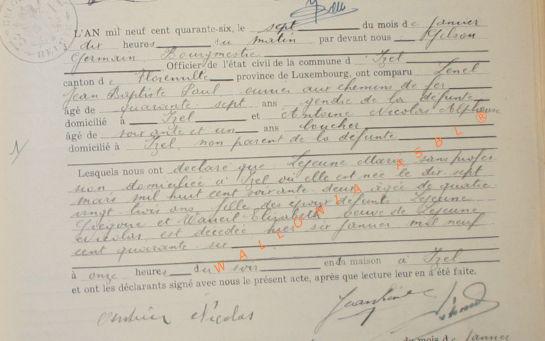 L'AN mil neuf cent quarante-six, le sept du mois de janvier
à dix heures du matin par devant nous Gilson
Germain Bourgmestre
Officier de l'état civil de la commune d'Izel
canton de Florenville province de Luxembourg, ont comparu
Jean Baptiste Paul ouvrier aux chemins de fer
âgé de quarante sept ans gendre de la défunte
domicilié à Izel et Antoine Nicolas Alphonse
âgé de soixante et un ans boucher
domicilié à Izel, non parent de la défunte
Lesquels nous ont déclaré que Lejeune Marie sans profes
sion domiciliée à Izel où elle est née le dix sept
mars mil huit cent soixante deux âgée de quatre
vingt trois ans, fille des époux défunts Lejeune
Grégoire et Elisabeth veuve de Lejeune
Nicolas, est décédée hier six janvier mil neuf
cent quarante six
à onze heures du soir en sa maison à Izel
et ont les déclarants signé avec nous le présent acte, après que lecture leur en a été faite.
Nicolas
du mois de janvier
WALLONIA ASBL